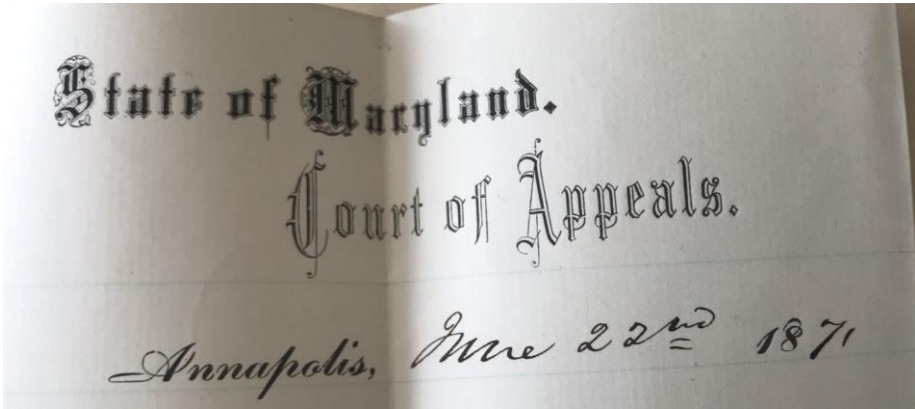 State of Maryland.
Court of Appeals.
Annapolis, June 22nd 1871